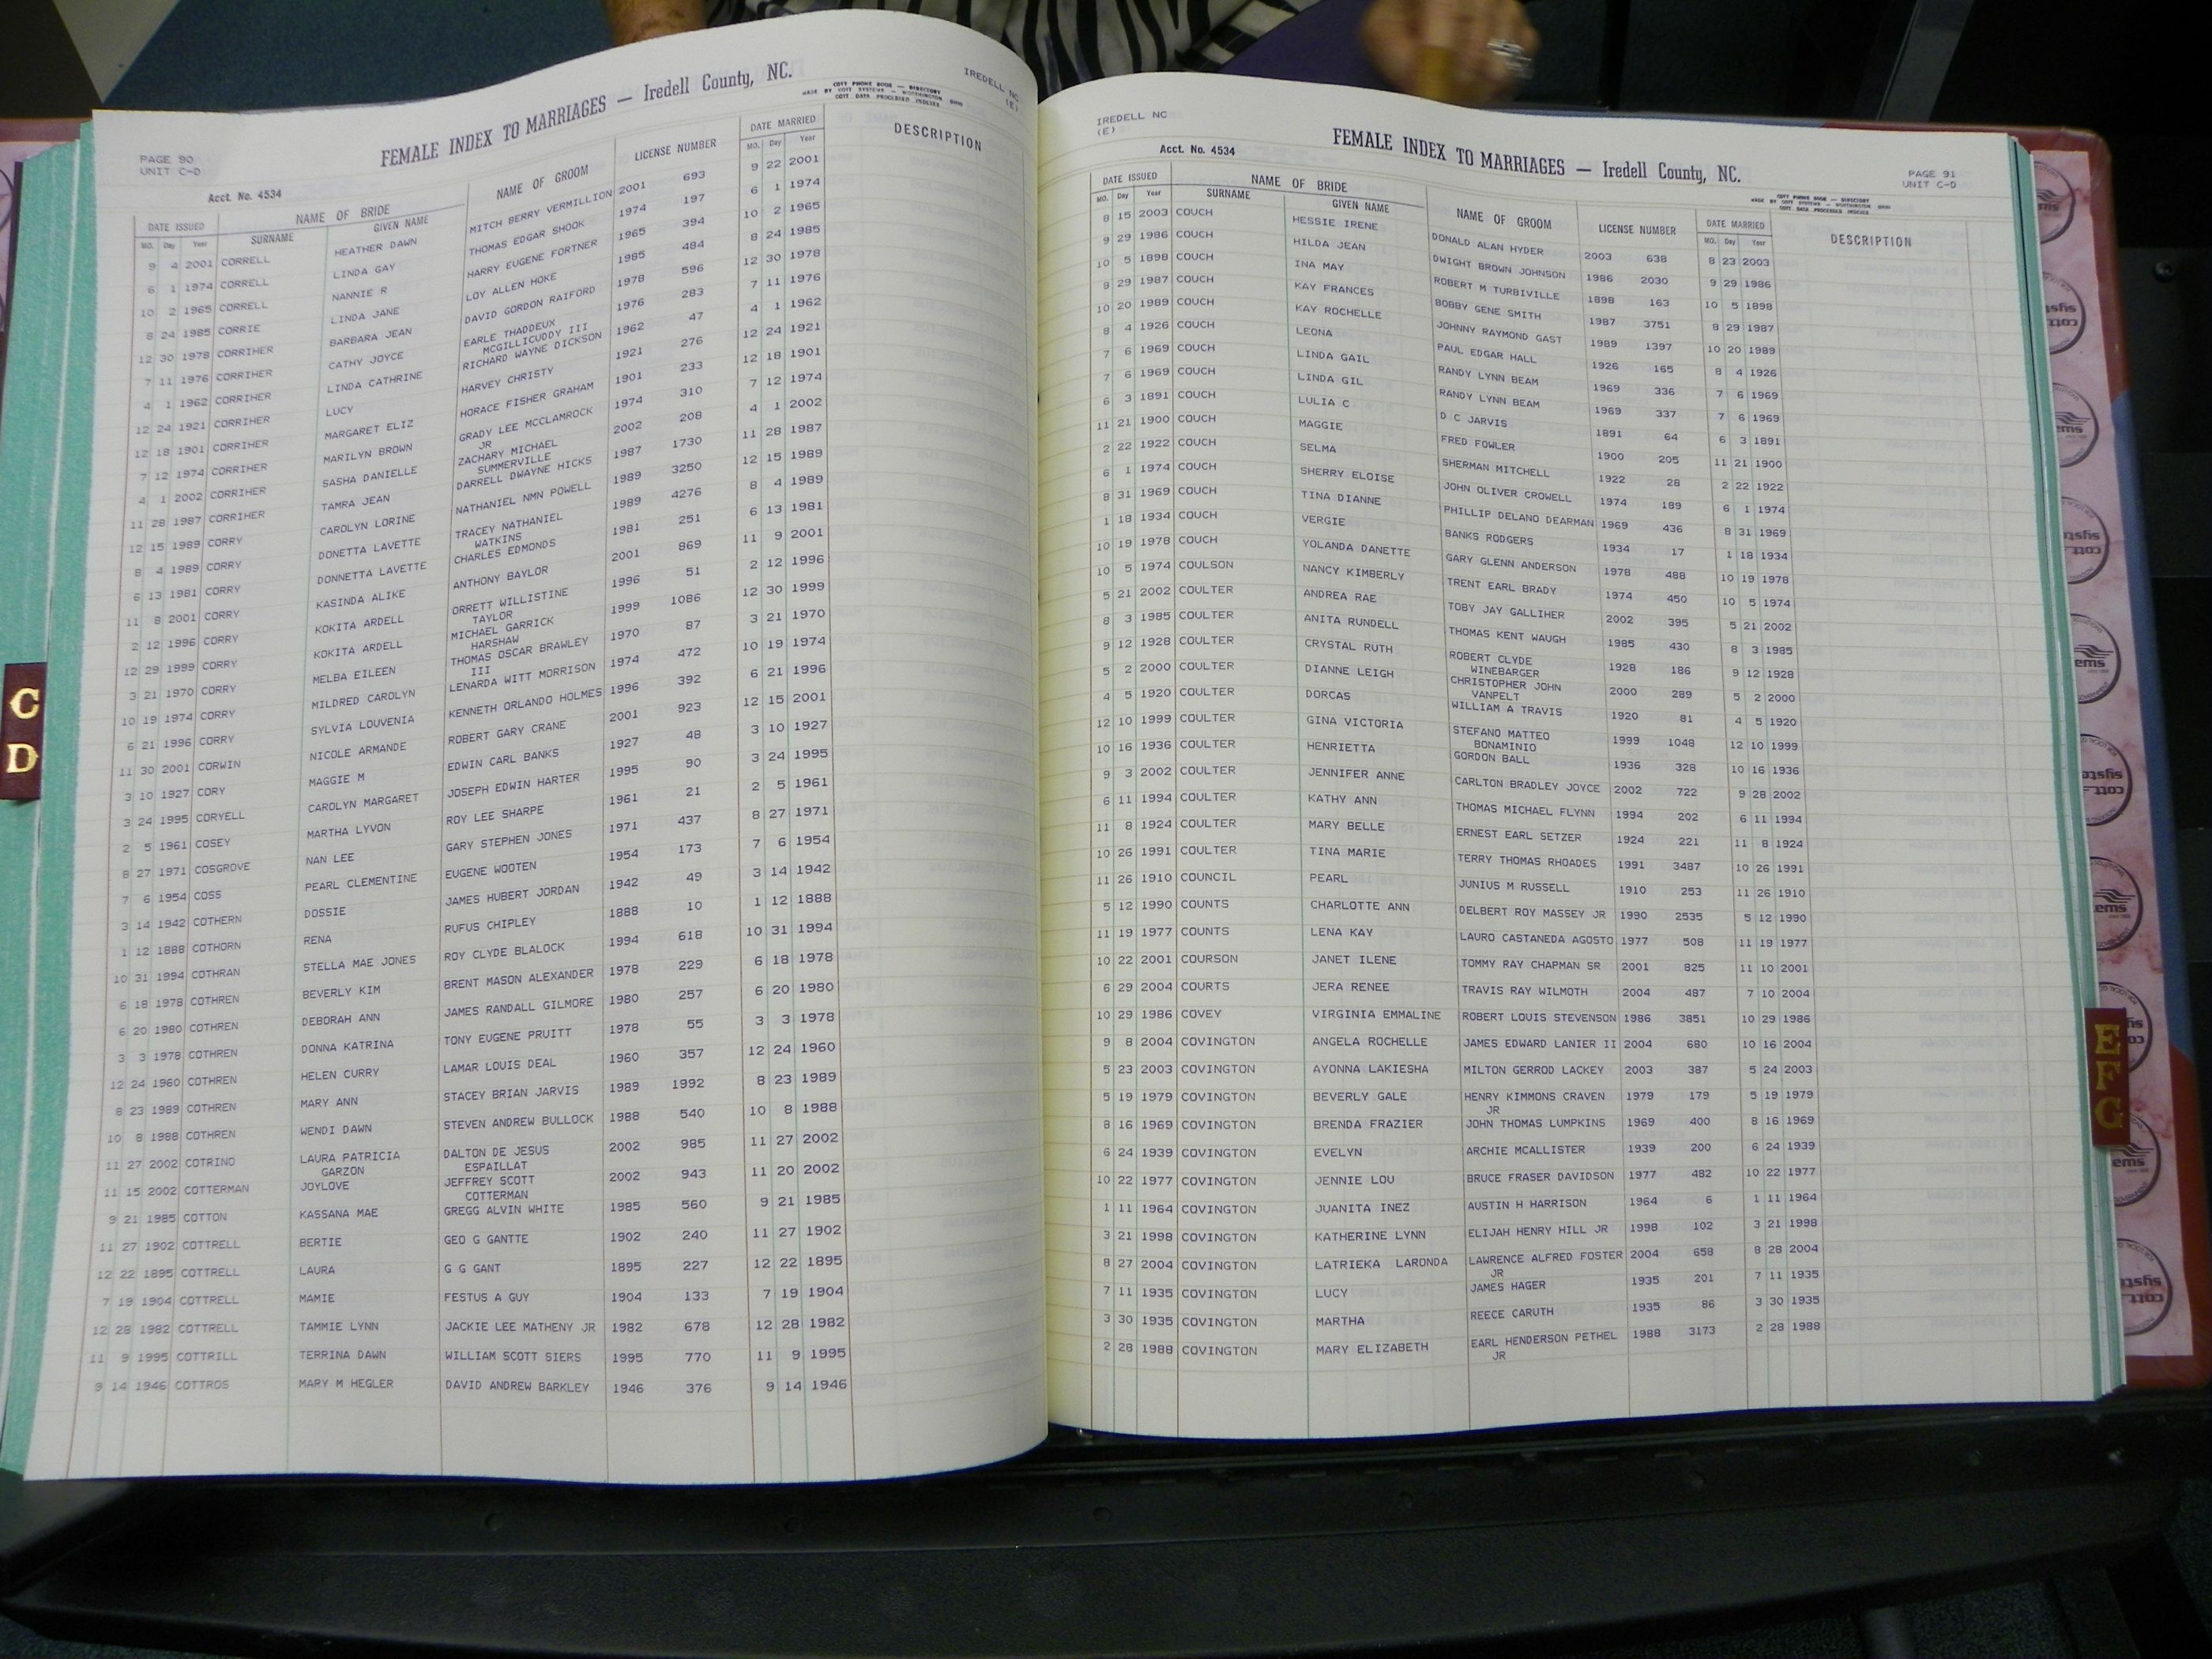 IREDELL NC
(E)
FEMALE INDEX TO MARRIAGES — Iredell County, NC.
COTT PHONE BOOK — DIRECTORY
MADE BY COTT SYSTEMS — WORTHINGTON OHIO
COTT DATA PROCESSED INDEXES
PAGE 90
UNIT C-D
Acct. No. 4534
DATE ISSUED NAME OF BRIDE NAME OF GROOM LICENSE NUMBER DATE MARRIED DESCRIPTION
MO. Day Year SURNAME GIVEN NAME MO. Day Year
9 4 2001 CORRELL HEATHER DAWN MITCH BERRY VERMILLION 2001 693 9 22 2001
6 1 1974 CORRELL LINDA GAY THOMAS EDGAR SHOOK 1974 197 6 1 1974
10 2 1965 CORRELL NANNIE R HARRY EUGENE FORTNER 1965 394 10 2 1965
8 24 1985 CORRIE LINDA JANE LOY ALLEN HOKE 1985 484 8 24 1985
12 30 1978 CORRIHER BARBARA JEAN DAVID GORDON RAIFORD 1978 596 12 30 1978
7 11 1976 CORRIHER CATHY JOYCE EARLE THADDEUX 1976 283 7 11 1976
MCGILLICUDDY III
4 1 1962 CORRIHER LINDA CATHRINE RICHARD WAYNE DICKSON 1962 47 4 1 1962
12 24 1921 CORRIHER LUCY HARVEY CHRISTY 1921 276 12 24 1921
12 18 1901 CORRIHER MARGARET ELIZ HORACE FISHER GRAHAM 1901 233 12 18 1901
7 12 1974 CORRIHER MARILYN BROWN GRADY LEE MCCLAMROCK 1974 310 7 12 1974
JR
4 1 2002 CORRIHER SASHA DANIELLE ZACHARY MICHAEL 2002 208 4 1 2002
SUMMERVILLE
11 28 1987 CORRIHER TAMRA JEAN DARRELL DWAYNE HICKS 1987 1730 11 28 1987
12 15 1989 CORRY CAROLYN LORINE NATHANIEL NMN POWELL 1989 3250 12 15 1989
8 4 1989 CORRY DONETTA LAVETTE TRACEY NATHANIEL 1989 4276 8 4 1989
WATKINS
6 13 1981 CORRY DONNETTA LAVETTE CHARLES EDMONDS 1981 251 6 13 1981
11 8 2001 CORRY KASINDA ALIKE ANTHONY BAYLOR 2001 869 11 9 2001
2 12 1996 CORRY KOKITA ARDELL ORRETT WILLISTINE 1996 51 2 12 1996
TAYLOR
12 29 1999 CORRY KOKITA ARDELL MICHAEL GARRICK 1999 1086 12 30 1999
HARSHAW
3 21 1970 CORRY MELBA EILEEN THOMAS OSCAR BRAWLEY 1970 87 3 21 1970
III
10 19 1974 CORRY MILDRED CAROLYN LENARDA WITT MORRISON 1974 472 10 19 1974
6 21 1996 CORRY SYLVIA LOUVENIA KENNETH ORLANDO HOLMES 1996 392 6 21 1996
11 30 2001 CORWIN NICOLE ARMANDE ROBERT GARY CRANE 2001 923 12 15 2001
3 10 1927 CORY MAGGIE M EDWIN CARL BANKS 1927 48 3 10 1927
3 24 1995 CORYELL CAROLYN MARGARET JOSEPH EDWIN HARTER 1995 90 3 24 1995
2 5 1961 COSEY MARTHA LYVON ROY LEE SHARPE 1961 21 2 5 1961
8 27 1971 COSGROVE NAN LEE GARY STEPHEN JONES 1971 437 8 27 1971
7 6 1954 COSS PEARL CLEMENTINE EUGENE WOOTEN 1954 173 7 6 1954
3 14 1942 COTHERN DOSSIE JAMES HUBERT JORDAN 1942 49 3 14 1942
1 12 1888 COTHORN RENA RUFUS CHIPLEY 1888 10 1 12 1888
10 31 1994 COTHRAN STELLA MAE JONES ROY CLYDE BLALOCK 1994 618 10 31 1994
6 18 1978 COTHREN BEVERLY KIM BRENT MASON ALEXANDER 1978 229 6 18 1978
6 20 1980 COTHREN DEBORAH ANN JAMES RANDALL GILMORE 1980 257 6 20 1980
3 3 1978 COTHREN DONNA KATRINA TONY EUGENE PRUITT 1978 55 3 3 1978
12 24 1960 COTHREN HELEN CURRY LAMAR LOUIS DEAL 1960 357 12 24 1960
8 23 1989 COTHREN MARY ANN STACEY BRIAN JARVIS 1989 1992 8 23 1989
10 8 1988 COTHREN WENDI DAWN STEVEN ANDREW BULLOCK 1988 540 10 8 1988
11 27 2002 COTRINO LAURA PATRICIA DALTON DE JESUS 2002 985 11 27 2002
GARZON ESPAILLAT
11 15 2002 COTTERMAN JOYLOVE JEFFREY SCOTT 2002 943 11 20 2002
COTTERMAN
9 21 1985 COTTON KASSANA MAE GREGG ALVIN WHITE 1985 560 9 21 1985
11 27 1902 COTTRELL BERTIE GEO G GANTTE 1902 240 11 27 1902
12 22 1895 COTTRELL LAURA G G GANT 1895 227 12 22 1895
7 19 1904 COTTRELL MAMIE FESTUS A GUY 1904 133 7 19 1904
12 28 1982 COTTRELL TAMMIE LYNN JACKIE LEE MATHENY JR 1982 678 12 28 1982
11 9 1995 COTTRILL TERRINA DAWN WILLIAM SCOTT SIERS 1995 770 11 9 1995
9 14 1946 COTTROS MARY M HEGLER DAVID ANDREW BARKLEY 1946 376 9 14 1946
IREDELL NC
(E)
Acct. No. 4534
FEMALE INDEX TO MARRIAGES — Iredell County, NC.
PAGE 91
UNIT C-D
COTT PHONE BOOK — DIRECTORY
MADE BY COTT SYSTEMS — WORTHINGTON OHIO
COTT DATA PROCESSED INDEXES
DATE ISSUED NAME OF BRIDE NAME OF GROOM LICENSE NUMBER DATE MARRIED DESCRIPTION
MO. Day Year SURNAME GIVEN NAME MO. Day Year
8 15 2003 COUCH HESSIE IRENE DONALD ALAN HYDER 2003 638 8 23 2003
9 29 1986 COUCH HILDA JEAN DWIGHT BROWN JOHNSON 1986 2030 9 29 1986
10 5 1898 COUCH INA MAY ROBERT M TURBIVILLE 1898 163 10 5 1898
8 29 1987 COUCH KAY FRANCES BOBBY GENE SMITH 1987 3751 8 29 1987
10 20 1989 COUCH KAY ROCHELLE JOHNNY RAYMOND GAST 1989 1397 10 20 1989
8 4 1926 COUCH LEONA PAUL EDGAR HALL 1926 165 8 4 1926
7 6 1969 COUCH LINDA GAIL RANDY LYNN BEAM 1969 336 7 6 1969
7 6 1969 COUCH LINDA GIL RANDY LYNN BEAM 1969 337 7 6 1969
6 3 1891 COUCH LULIA C D C JARVIS 1891 64 6 3 1891
11 21 1900 COUCH MAGGIE FRED FOWLER 1900 205 11 21 1900
2 22 1922 COUCH SELMA SHERMAN MITCHELL 1922 28 2 22 1922
6 1 1974 COUCH SHERRY ELOISE JOHN OLIVER CROWELL 1974 189 6 1 1974
8 31 1969 COUCH TINA DIANNE PHILLIP DELANO DEARMAN 1969 436 8 31 1969
1 18 1934 COUCH VERGIE BANKS RODGERS 1934 17 1 18 1934
10 19 1978 COUCH YOLANDA DANETTE GARY GLENN ANDERSON 1978 488 10 19 1978
10 5 1974 COULSON NANCY KIMBERLY TRENT EARL BRADY 1974 450 10 5 1974
5 21 2002 COULTER ANDREA RAE TOBY JAY GALLIHER 2002 395 5 21 2002
8 3 1985 COULTER ANITA RUNDELL THOMAS KENT WAUGH 1985 430 8 3 1985
9 12 1928 COULTER CRYSTAL RUTH ROBERT CLYDE 1928 186 9 12 1928
WINEBARGER
5 2 2000 COULTER DIANNE LEIGH CHRISTOPHER JOHN 2000 289 5 2 2000
VANPELT
4 5 1920 COULTER DORCAS WILLIAM A TRAVIS 1920 81 4 5 1920
12 10 1999 COULTER GINA VICTORIA STEFANO MATTEO 1999 1048 12 10 1999
BONAMINIO
10 16 1936 COULTER HENRIETTA GORDON BALL 1936 328 10 16 1936
9 3 2002 COULTER JENNIFER ANNE CARLTON BRADLEY JOYCE 2002 722 9 28 2002
6 11 1994 COULTER KATHY ANN THOMAS MICHAEL FLYNN 1994 202 6 11 1994
11 8 1924 COULTER MARY BELLE ERNEST EARL SETZER 1924 221 11 8 1924
10 26 1991 COULTER TINA MARIE TERRY THOMAS RHOADES 1991 3487 10 26 1991
11 26 1910 COUNCIL PEARL JUNIUS M RUSSELL 1910 253 11 26 1910
5 12 1990 COUNTS CHARLOTTE ANN DELBERT ROY MASSEY JR 1990 2535 5 12 1990
11 19 1977 COUNTS LENA KAY LAURO CASTANEDA AGOSTO 1977 508 11 19 1977
10 22 2001 COURSON JANET ILENE TOMMY RAY CHAPMAN SR 2001 825 11 10 2001
6 29 2004 COURTS JERA RENEE TRAVIS RAY WILMOTH 2004 487 7 10 2004
10 29 1986 COVEY VIRGINIA EMMALINE ROBERT LOUIS STEVENSON 1986 3851 10 29 1986
9 8 2004 COVINGTON ANGELA ROCHELLE JAMES EDWARD LANIER II 2004 680 10 16 2004
5 23 2003 COVINGTON AYONNA LAKIESHA MILTON GERROD LACKEY 2003 387 5 24 2003
5 19 1979 COVINGTON BEVERLY GALE HENRY KIMMONS CRAVEN 1979 179 5 19 1979
JR
8 16 1969 COVINGTON BRENDA FRAZIER JOHN THOMAS LUMPKINS 1969 400 8 16 1969
6 24 1939 COVINGTON EVELYN ARCHIE MCALLISTER 1939 200 6 24 1939
10 22 1977 COVINGTON JENNIE LOU BRUCE FRASER DAVIDSON 1977 482 10 22 1977
1 11 1964 COVINGTON JUANITA INEZ AUSTIN H HARRISON 1964 6 1 11 1964
3 21 1998 COVINGTON KATHERINE LYNN ELIJAH HENRY HILL JR 1998 102 3 21 1998
8 27 2004 COVINGTON LATRIEKA LARONDA LAWRENCE ALFRED FOSTER 2004 658 8 28 2004
JR
7 11 1935 COVINGTON LUCY JAMES HAGER 1935 201 7 11 1935
3 30 1935 COVINGTON MARTHA REECE CARUTH 1935 86 3 30 1935
2 28 1988 COVINGTON MARY ELIZABETH EARL HENDERSON PETHEL 1988 3173 2 28 1988
JR
C
D
E
F
G